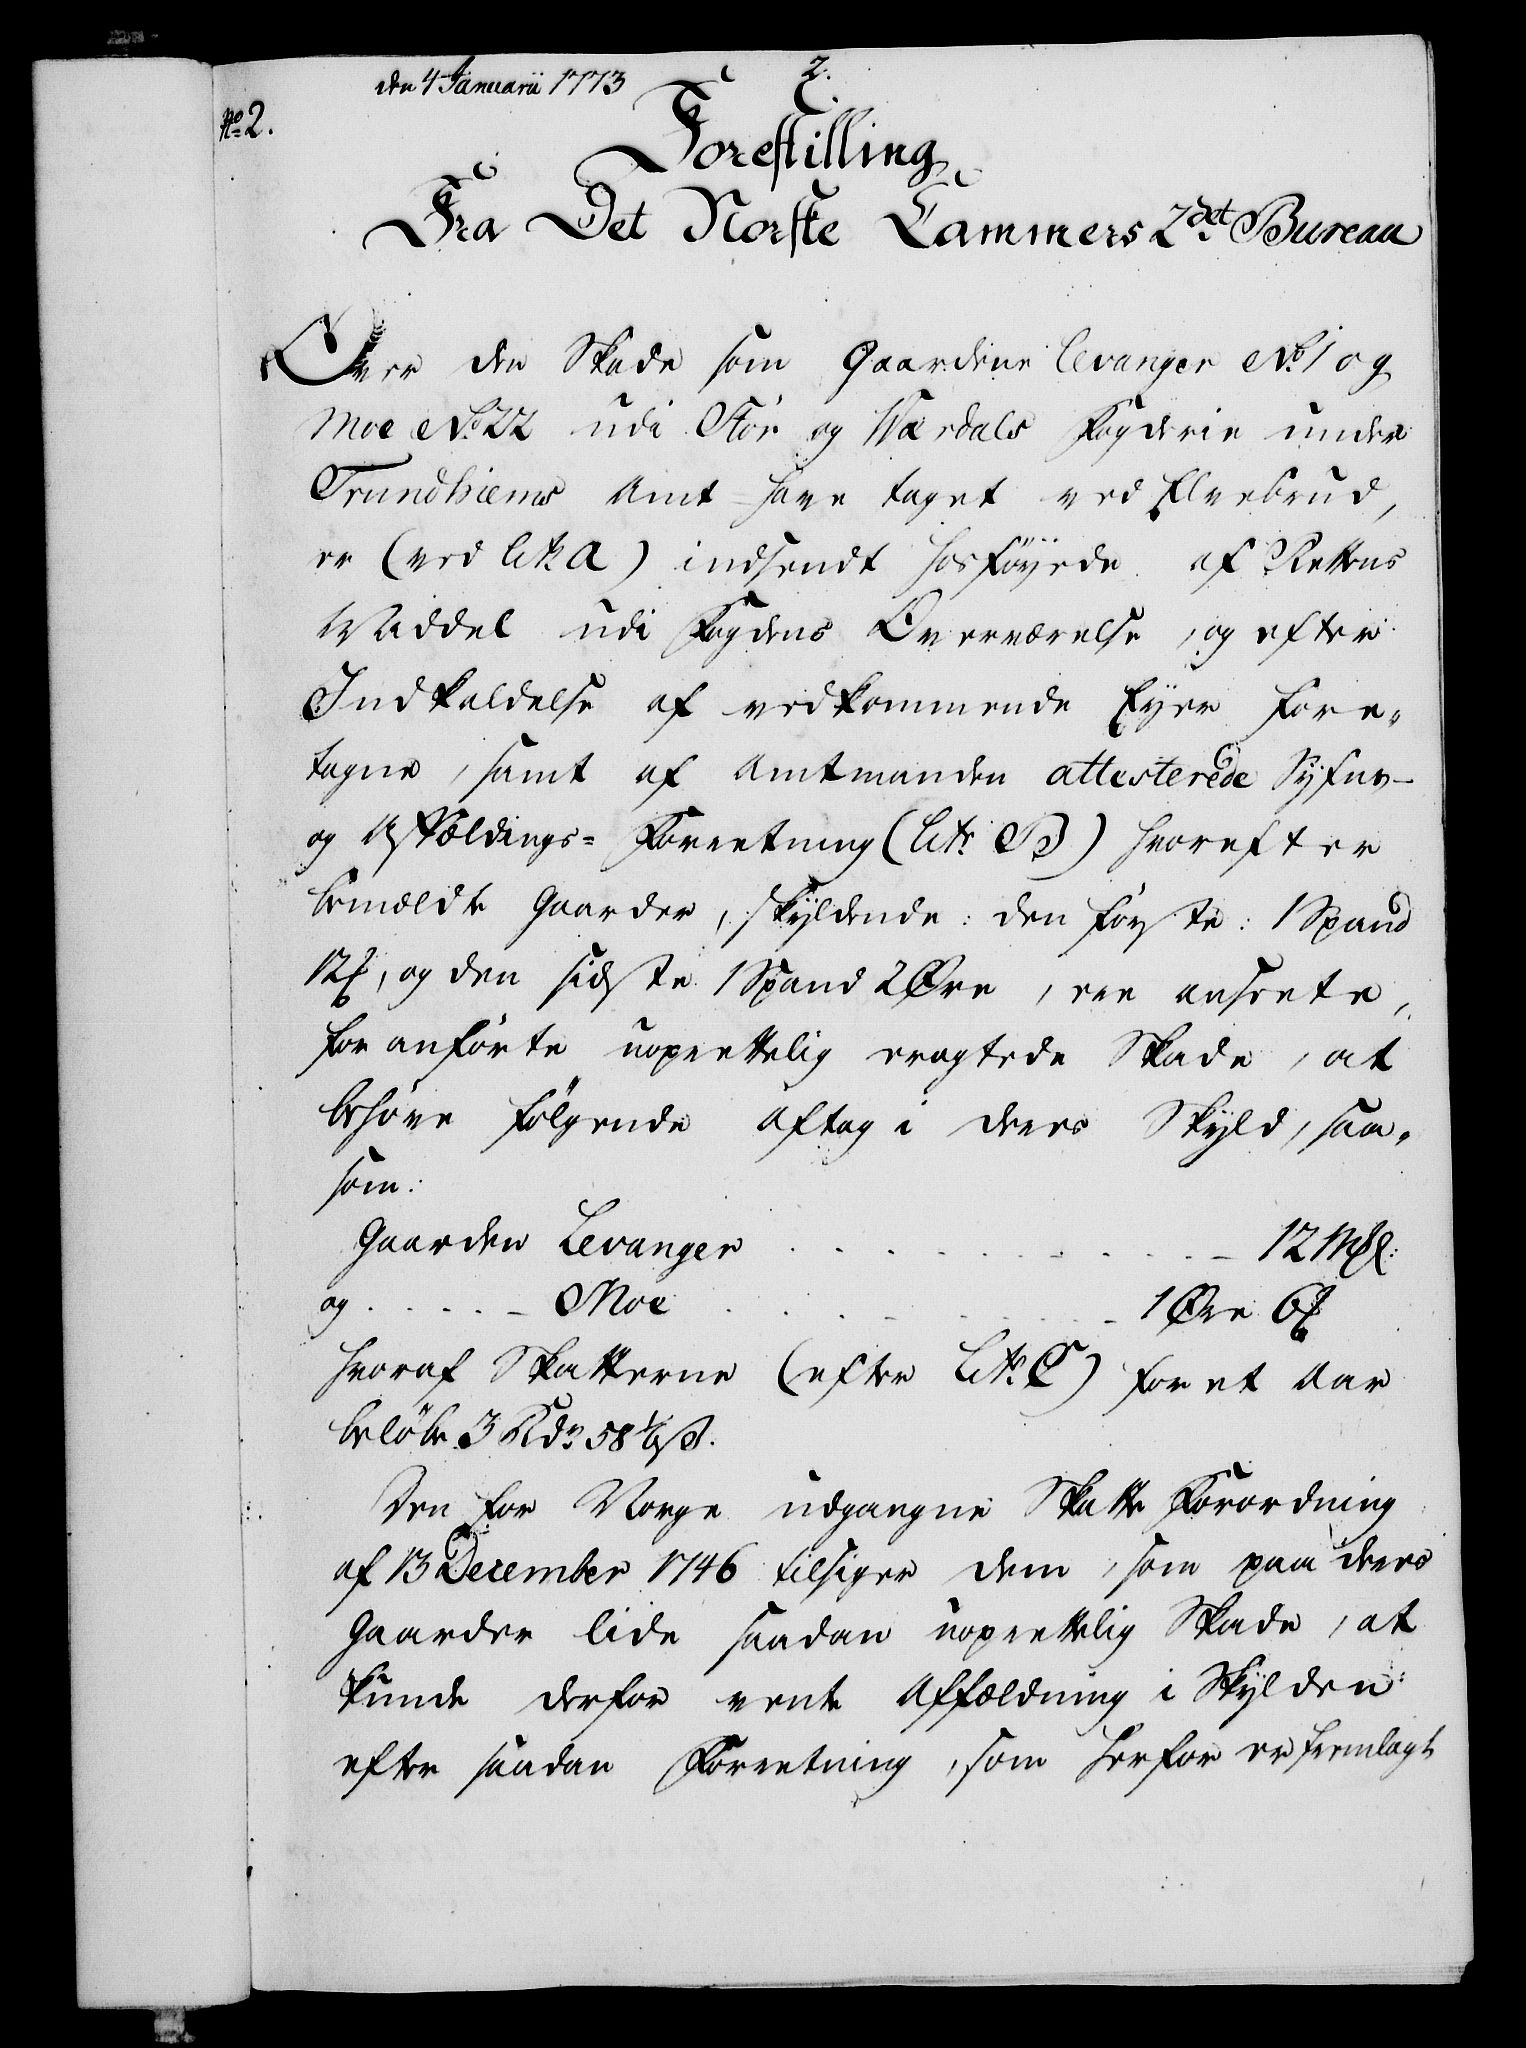 den 4 Januarii 1773
2.
No 2.
Forestilling
Fra Det Norske Cammers 2det Bureau
Over den Skade som Gaardene Levanger No. 1 og
Moe No. 22 udi Stör og Wærdals Fogderie under
Trundhiems Amt have taget ved Elvebrud,
er (ved Litr. A) indsendt hosföyede af Rettens
Middel udi Fogdens Overværelse, og efter
Indkaldelse af vedkommende Eyer fore-
tagne, samt af Amtmanden attesterede Syfns-
og Afældings- Forretning (Litr. B) hvorefter
bemældte Gaarder, skyldende: den förste: 1 Spand
12 , og den sidste 1 Spand 2 Øre, ere ansete,
for anförte uoprettelig eragtede Skade, at
behöve fölgende Aftag i deres Skyld, saa-
som:
Gaarden Levanger . . . . . . . . . . 12 Mkl:
og . . . . - Moe . . . . . . . . 1 Øre 6
hvoraf Skatterne (efter Litr. C) for et Aar
belöbe 3 Rdr. 58 1/6 ß.
Den for Norge udgangne Skatte Forordning
af 13 December 1746 tilsiger dem, som paa deres
Gaarder lide saadan uoprettelig Skade, at
kunde derfor vente Affældning i Skylden
efter saadan Forretning, som herfor er fremlagt